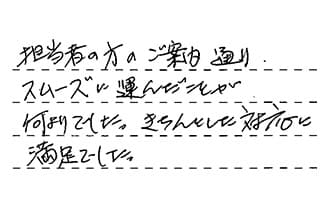 担当者の方のご案内通り、
スムーズに運んだことが
何よりでした。きちんとした対応に
満足でした。